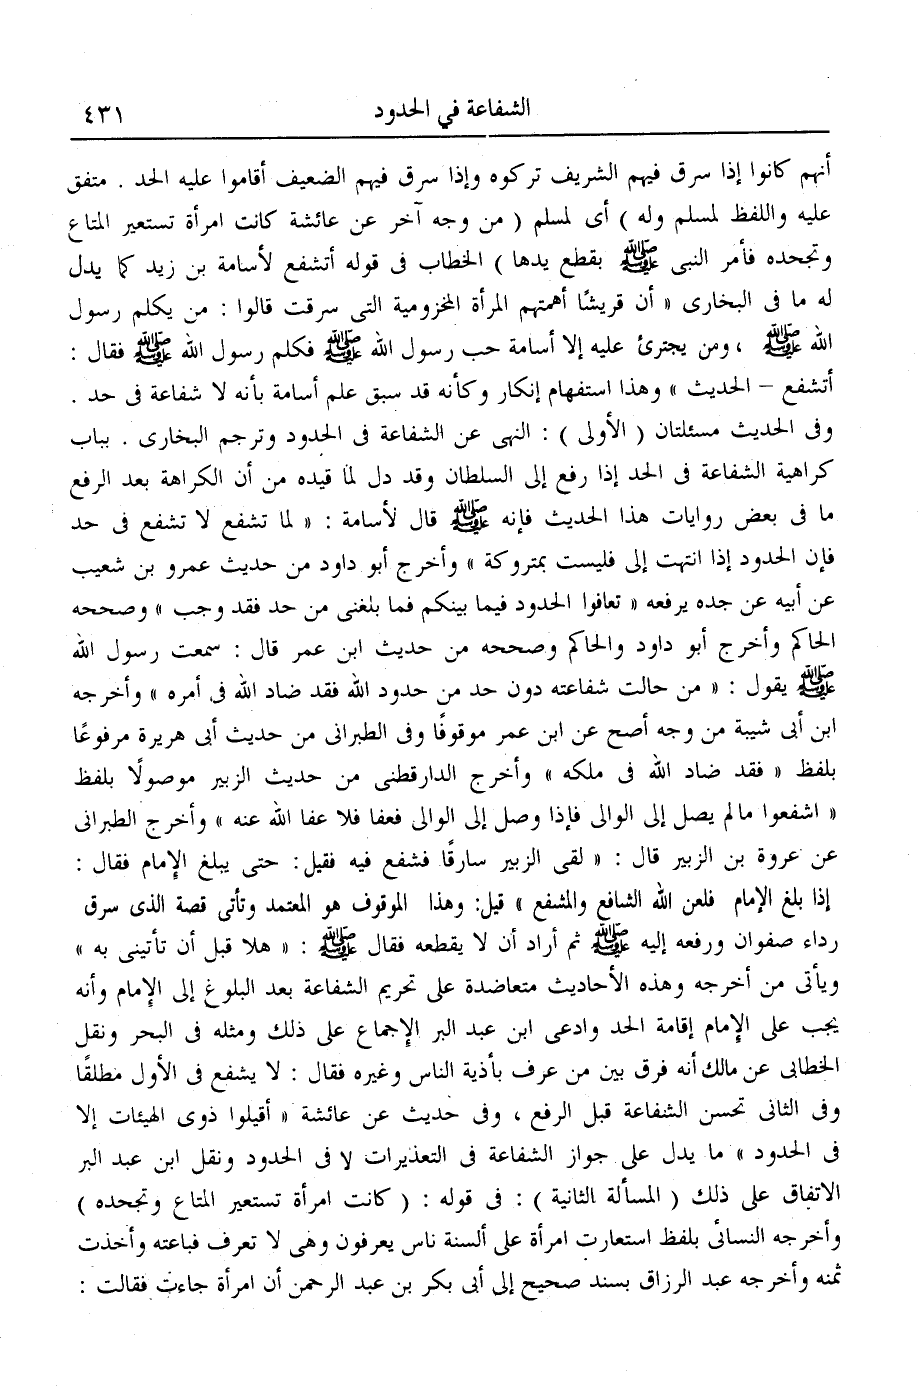 الشفاعة في الحدود ٤٣١
أنهم كانوا إذا سرق فيهم الشريف تركوه وإذا سرق فيهم الضعيف أقاموا عليه الحد . متفق
عليه واللفظ لمسلم وله ) أى لمسلم ( من وجه آخر عن عائشة كانت امرأة تستعير المتاع
وتجحده فأمر النبى ﷺ بقطع يدها ) الخطاب فى قوله أتشفع لأسامة بن زيد كما يدل
له ما فى البخارى « أن قريشًا أهمتهم المرأة المخزومية التى سرقت قالوا : من يكلم رسول
الله ﷺ ، ومن يجترئ عليه إلا أسامة حب رسول الله ﷺ فكلم رسول الله ﷺ فقال :
أتشفع – الحديث » وهذا استفهام إنكار وكأنه قد سبق علم أسامة بأنه لا شفاعة فى حد .
وفى الحديث مسئلتان ( الأولى ) : النهى عن الشفاعة فى الحدود وترجم البخارى . بباب
كراهية الشفاعة فى الحد إذا رفع إلى السلطان وقد دل لما قيده من أن الكراهة بعد الرفع
ما فى بعض روايات هذا الحديث فإنه ﷺ قال لأسامة : « لما تشفع لا تشفع فى حد
فإن الحدود إذا انتهت إلى فليست بمتروكة » وأخرج أبو داود من حديث عمرو بن شعيب
عن أبيه عن جده يرفعه « تعافوا الحدود فيما بينكم فما بلغنى من حد فقد وجب » وصححه
الحاكم وأخرج أبو داود والحاكم وصححه من حديث ابن عمر قال : سمعت رسول الله
ﷺ يقول : « من حالت شفاعته دون حد من حدود الله فقد ضاد الله فى أمره » وأخرجه
ابن أبى شيبة من وجه أصح عن ابن عمر موقوفًا وفى الطبرانى من حديث أبى هريرة مرفوعًا
بلفظ « فقد ضاد الله فى ملكه » وأخرج الدارقطنى من حديث الزبير موصولًا بلفظ
« اشفعوا مالم يصل إلى الوالى فإذا وصل إلى الوالى فعفا فلا عفا الله عنه » وأخرج الطبرانى
عن عروة بن الزبير قال : « لقى الزبير سارقًا فشفع فيه فقيل: حتى يبلغ الإمام فقال :
إذا بلغ الإمام فلعن الله الشافع والمشفع » قيل: وهذا الموقوف هو المعتمد وتأتى قصة الذى سرق
رداء صفوان ورفعه إليه ﷺ ثم أراد أن لا يقطعه فقال ﷺ : « هلا قبل أن تأتينى به »
ويأتى من أخرجه وهذه الأحاديث متعاضدة على تحريم الشفاعة بعد البلوغ إلى الإمام وأنه
يجب على الإمام إقامة الحد وادعى ابن عبد البر الإجماع على ذلك ومثله فى البحر ونقل
الخطابى عن مالك أنه فرق بين من عرف بأذية الناس وغيره فقال : لا يشفع فى الأول مطلقًا
وفى الثانى تحسن الشفاعة قبل الرفع ، وفى حديث عن عائشة « أقيلوا ذوى الهيئات إلا
فى الحدود » ما يدل على جواز الشفاعة فى التعذيرات لا فى الحدود ونقل ابن عبد البر
الاتفاق على ذلك ( المسألة الثانية ) : فى قوله : ( كانت امرأة تستعير المتاع وتجحده )
وأخرجه النسائى بلفظ استعارت امرأة على ألسنة ناس يعرفون وهى لا تعرف فباعته وأخذت
ثمنه وأخرجه عبد الرزاق بسند صحيح إلى أبى بكر بن عبد الرحمن أن امرأة جاءت فقالت :